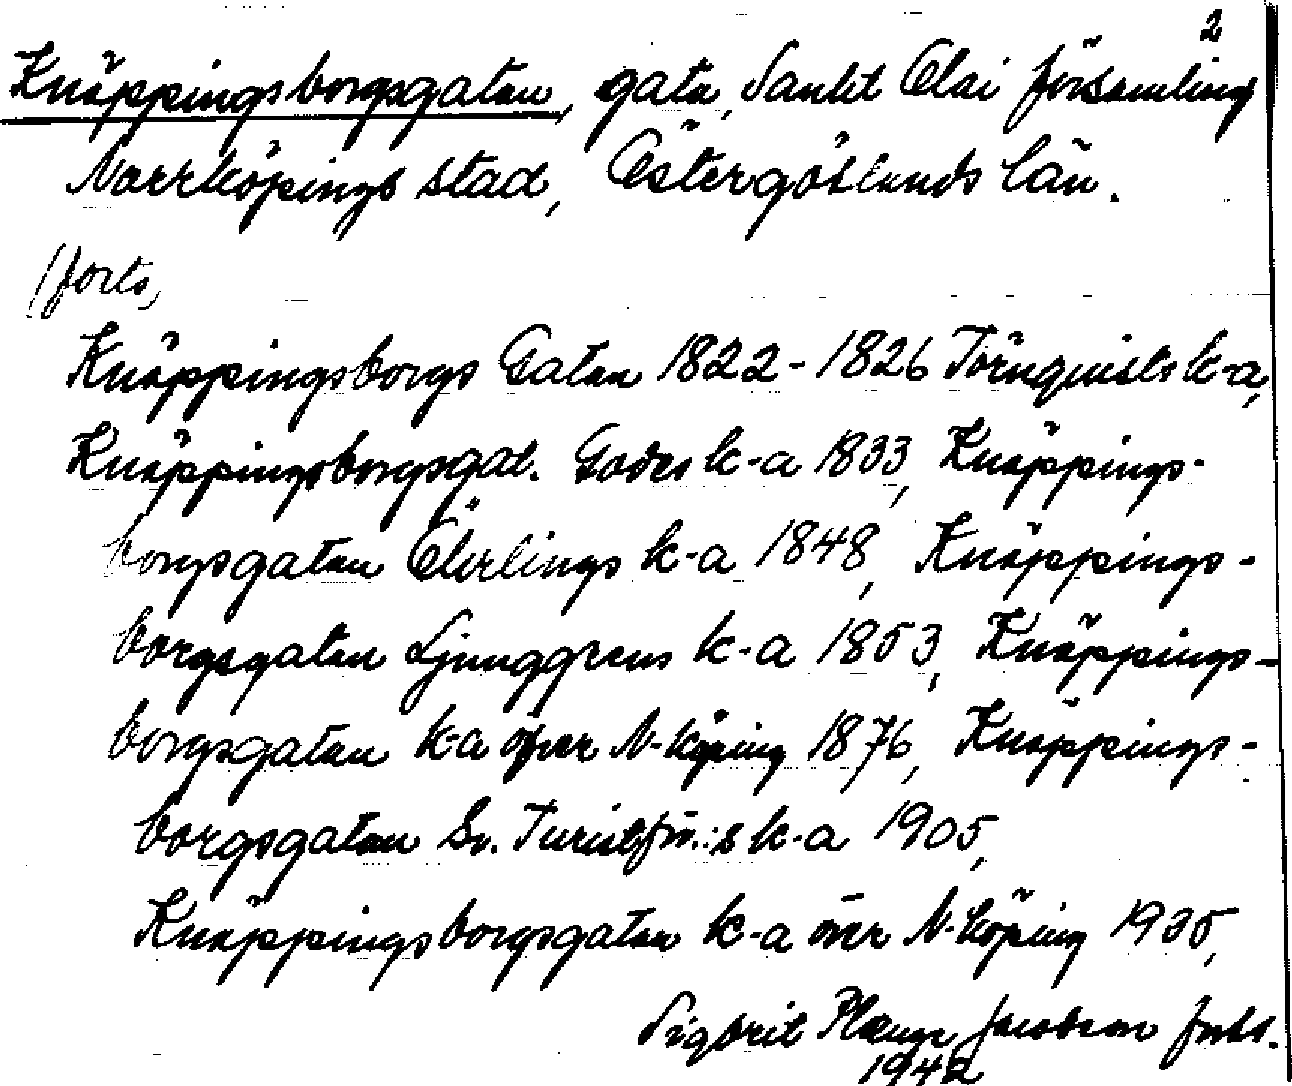 2
Knäppingsborgsgatan, gata, Sankt Olai församling
Norrköpings stad, Östergötlands län.
(forts,
Knäppingsborgs Gatan 1822-1826 Törnquists k-a,
Knäppingsborgsgat. Godes k-a 1833, Knäppings-
borgsgatan Öhrlings k-a 1848, Knäppings-
borgsgatan Ljunggrens k-a 1853, Knäppings-
borgsgatan k-a öfver N-köping 1876, Knäppings-
borgsgatan Sv. Turistför.:s k-a 1905,
Knäppingsborgsgatan k-a över N-köping 1935,
Sigbrit Plænge Jacobson
1942